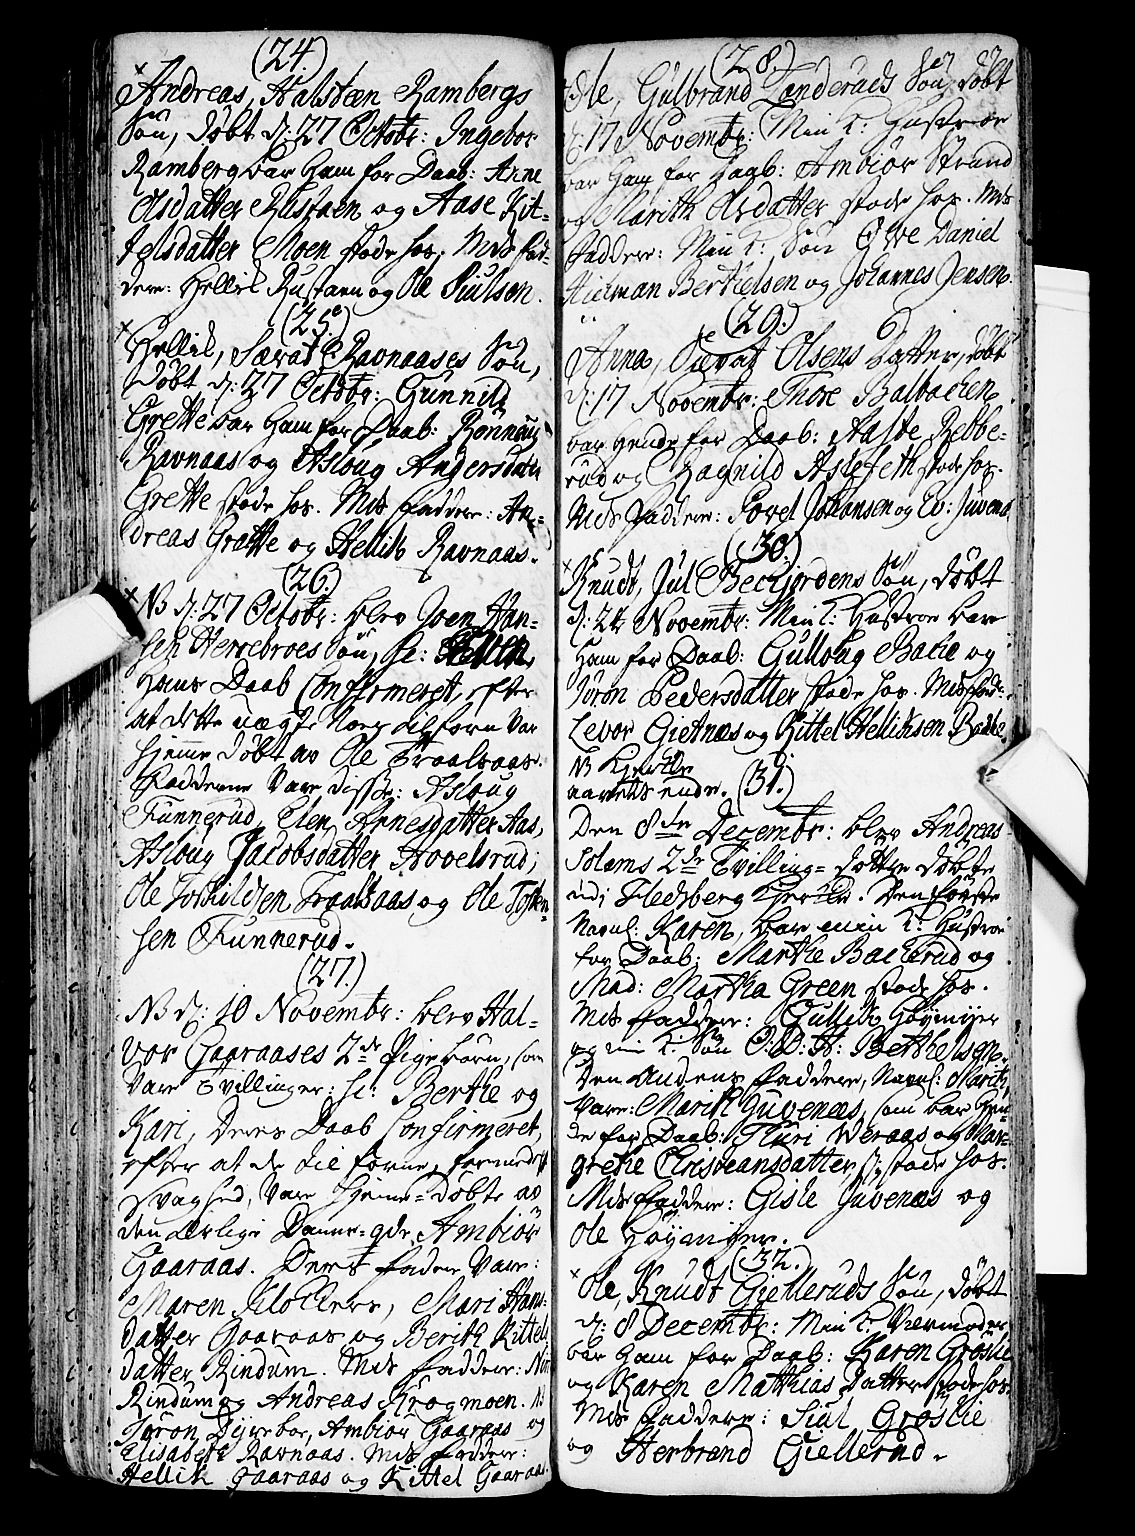 (24.)
Andreas, Halsteen Rambergs
Søn, døbt d: 27 Octobr: Ingebor
Ramberg bar ham for Daab: Anne
Olsdatter Rustaen og Aase Kit-
telsdatter Moen stode hos. Mds Fad-
dere: Hellik Rustaen og Ole Siulsen.
(25.)
Hellik, Ravnaases Søn,
døbt d: 27 Octobr: Gunnild
Grette bar ham for Daab: Rønnaug
Ravnaas og Asloug Andersdatter
Grette stode hos. Mds Faddere: An-
dreas Grette og Hellik Ravnaas.
(26.)
NB d: 27 Octobr: blev Joen Han-
sen Herrebroes Søn, sc:
hans Daab Confirmeret, efter
at dette Nog tilforn var
hjeme døbt av Ole Traalsaas.
Fadderne vare disse: Aslaug
Funnerud, Elen Arnesdatter Aas,
Asloug Jacobsdatter Hovelsrud;
Ole Torkildsen Traalsaas og Ole Tosten-
sen Funnerud.
(27.)
NB d: 10 Novembr: blev Hal-
vor Gaaraases 2de Pigebørn, som
vare Tvillinger: sc: Berthe og
Kari, deres Daab Confirmeret,
efter at de tilforne, formedelst
Svaghed, vare hjeme-døbte av
den ærlige Danne-qde Ambiør
Gaaraas. Dens Faddere vare:
Maren Klokkers, Mari Hans-
datter Gaaraas og Berith Kittels
datter Rindum. Mds Faddere:
Rindum og Andreas Krogmoen.
Jøron Dyrebor, Ambiør Gaaraas og
Elisabeth Ravnaas. Mds Faddere:
Hellik Gaaraas og Kittel Gaaraas.
(28.)
Ole, Gulbrand Landeruds Søn, døbt
d: 17 Novembr: Min K: Hustroe
bar ham for Daab: Ambiør Strand
og Marith Olsdatter stode hos. Mds
Faddere: Min K: Søn Ove Daniel
Hielman Berthelsen og Johannes Jensen.
(29.)
Anna, Olsens Datter, døbt
d: 17 Novembr: Thore Balbachen
bar hende for Daab: Aaste Rebbe-
rud og Ragnild Aslefeth stode hos.
Mds Faddere: Povel Johansen og Ev: Juvenæs
(30.)
Knudt, Jul Beckjordens Søn, døbt
d: 24 Novembr: Min K: Hustroe bar
ham for Daab: Gulloug Bache og
Jøron Pedersdatter stode hos. Mds Fad:
Levor Gietnæs og Kittel Hellichsen Bache.
NB
aarets ende. (31.)
Den 8de Decembr: blev Andreas
Solems 2de Tvilling-døttre døbte
udi Flesberg Kircke. Den første
Navnl: Karen, bar min K: Hustroe
for Daab: Marthe Bakerud og
Mad: Martha Green stode hos.
Mds Faddere: Gullik Høymyer
og min K: Søn O: D: H: Berthelsen.
Den andens Faddere, Navnl: Marith,
vare: Marith Juvenæs, som bar hen-
de for Daab: Thuri Weraas og Mar-
grethe Christeansdatter stode hos.
Mds Faddere: Gisle Juvenæs og
Ole Høymyer.
(32.)
Ole, Knudt Giellerruds Søn, døbt
d: 8 Decembr: Min K: Værmoder
bar ham for Daab: Karen Groslie
og Karen Matthias datter stode hos.
Mds Faddere: Siul Groslie
og Herbrand Giellerud.